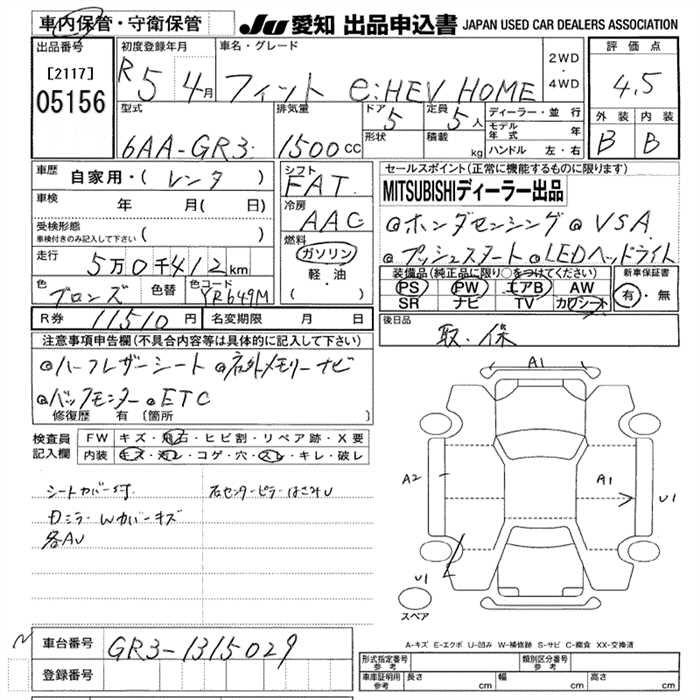 車内保管・守衛保管 JU 愛知 出品申込書 JAPAN USED CAR DEALERS ASSOCIATION
出品番号 初度登録年月 車名・グレード 2WD・4WD 評価点
[2117] R5 4月 フィット e:HEV HOME 4.5
05156 型式 排気量 ドア 5 定員 5人 ディーラー・並行 外装 内装
6AA-GR3 1500cc 形状 積載 kg モデル年式 年 B B
ハンドル 左・右
車歴 自家用・( レンタ ) シフト FAT セールスポイント(正常に機能するものに限ります)
車検 年 月( 日) 冷房 AAC MITSUBISHIディーラー出品
受検形態 ( ) @ホンダセンシング @VSA
車検付きのみ記入して下さい 燃料 ガソリン @プッシュスタート @LEDヘッドライト
走行 5万0千412km 軽油 装備品(純正品に限り○をつけてください) 新車保証書
色 ブロンズ 色替 色コード YR649M ( ) PS PW エアB AW 有・無
SR ナビ TV カワシート
R券 11510円 名変期限 月 日 後日品
取・保
注意事項申告欄(不具合内容等は具体的に記入して下さい)
@ハーフレザーシート @社外メモリーナビ
@バックモニター @ETC
修復歴 有 〔箇所 〕
A1
検査員記入欄 FW キズ・飛石・ヒビ割・リペア跡・X要
内装 キズ・汚レ・コゲ・穴・スレ・キレ・破レ
A2 A1 U1
シートカバー付 右センターピラーはこみU
Dミラーwカバーキズ
各AU
U1
スペア
A-キズ E-エクボ U-凹み W-補修跡 S-サビ C-腐食 XX-交換済
車台番号 GR3-1315029
登録番号
形式指定番号 参考 類別区分番号 参考
車庫証明用 参考 長さ cm 幅 cm 高さ cm